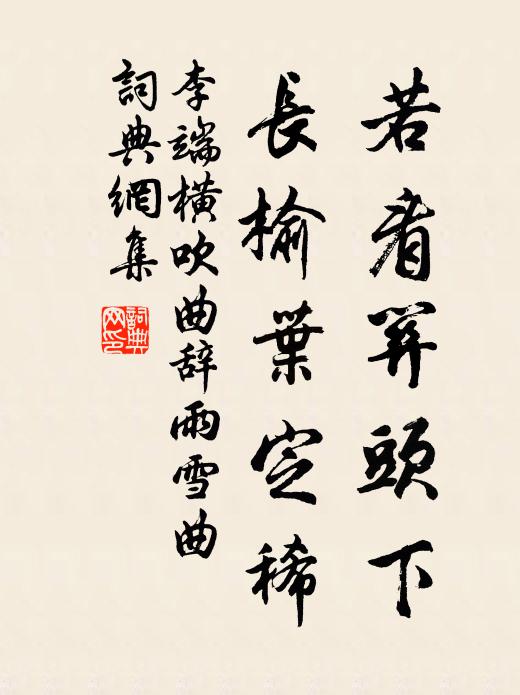 若看關頭下
長榆葉定稀
李端橫吹曲辞雨雪曲
詞典網集
詞典网印